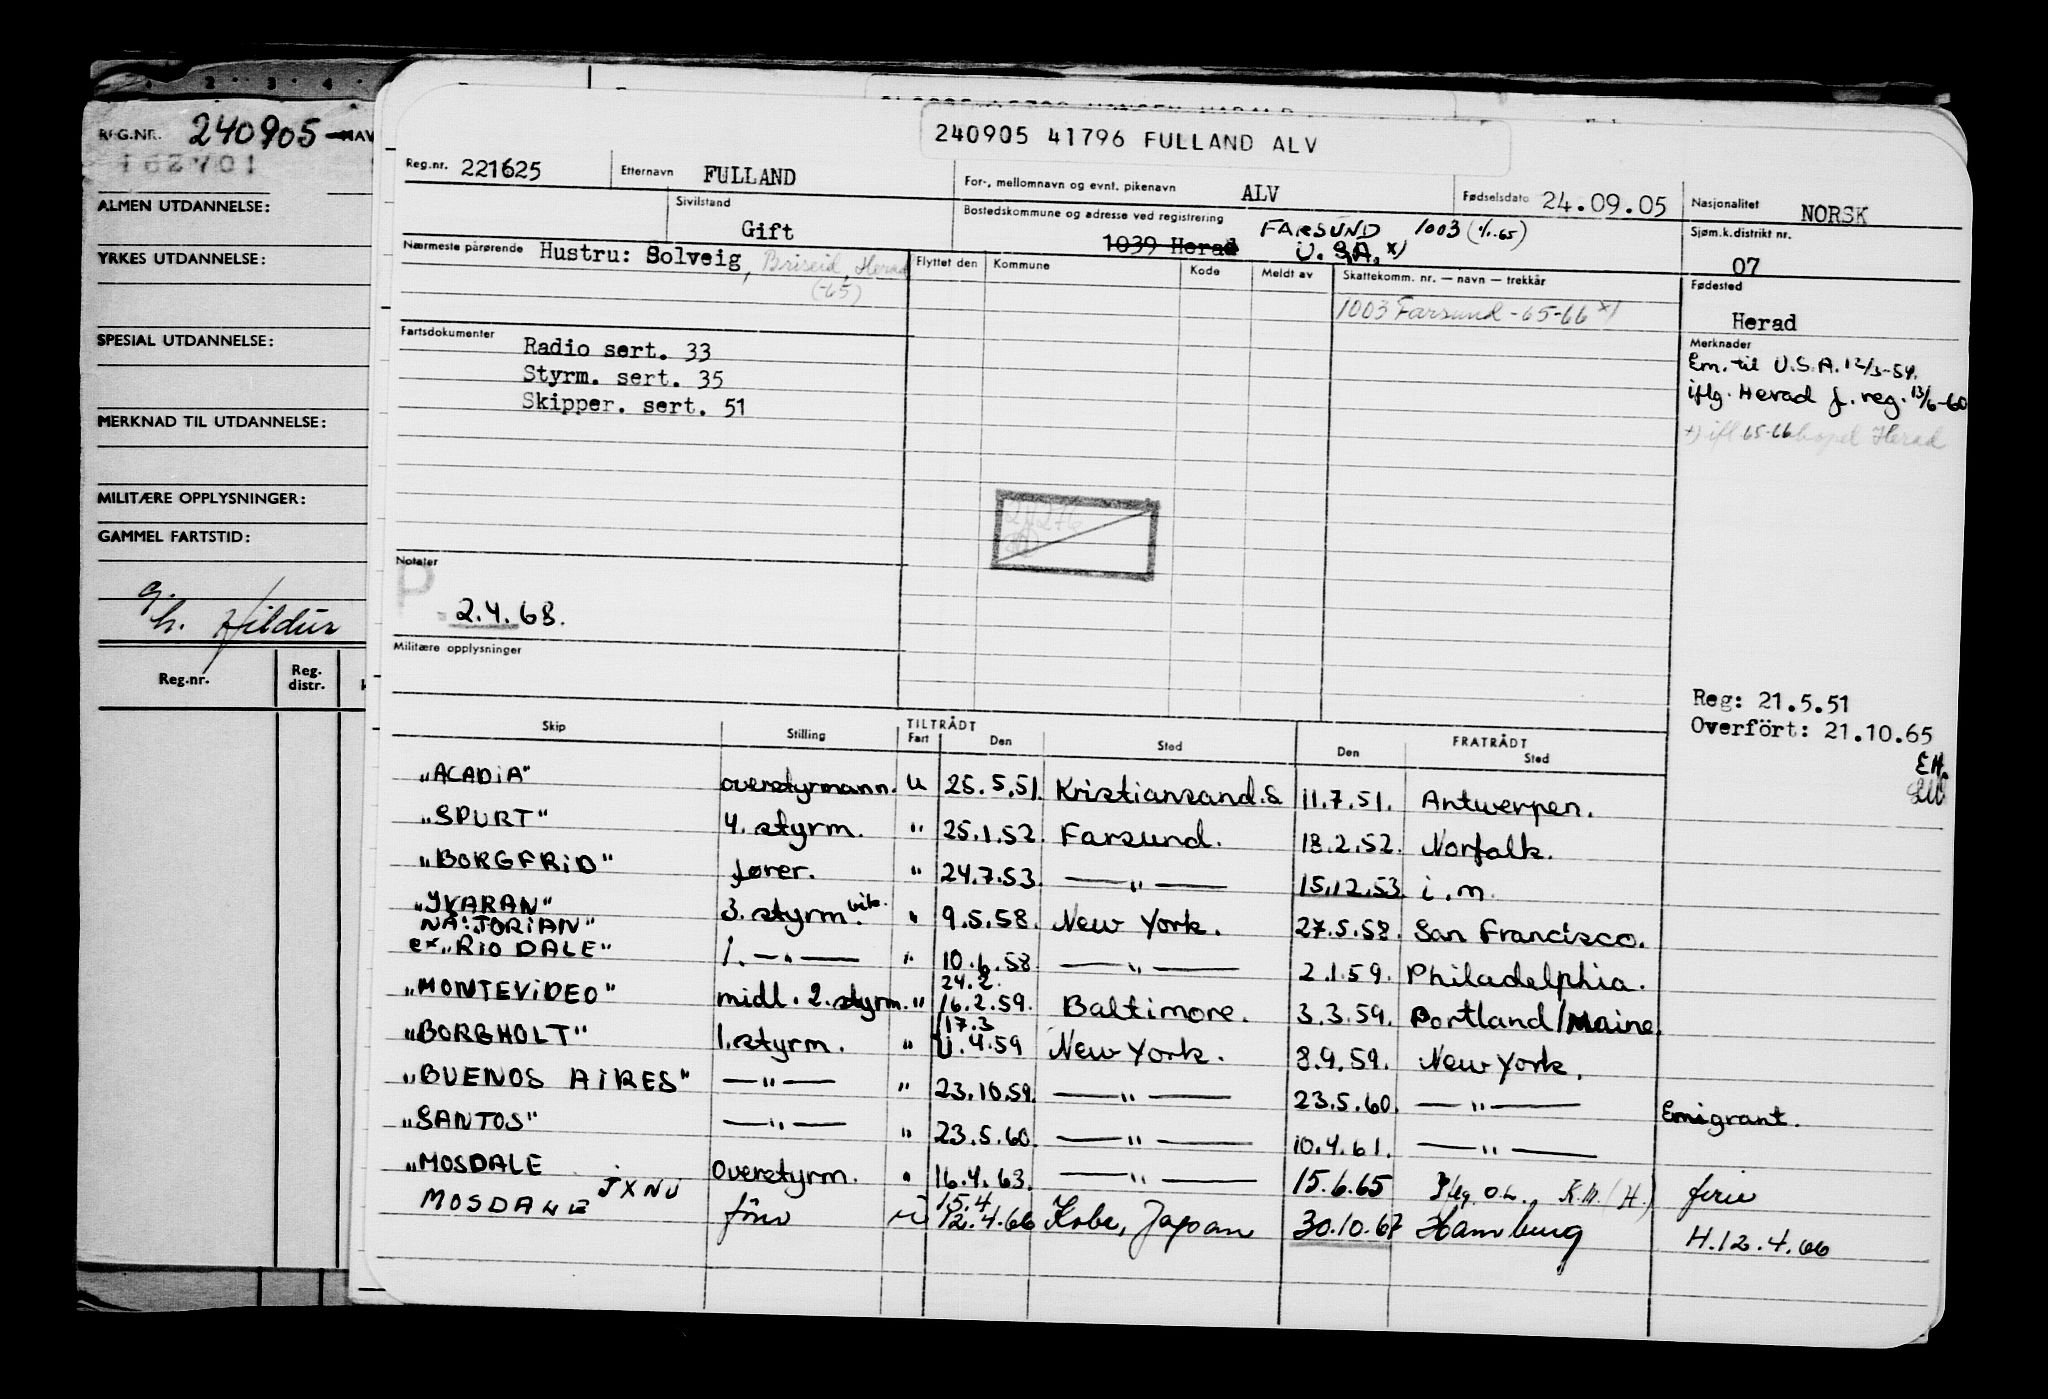 2 3 4
REG.NR. 240905 NAV
162701
ALMEN UTDANNELSE:
YRKES UTDANNELSE:
SPESIAL UTDANNELSE:
MERKNAD TIL UTDANNELSE:
MILITÆRE OPPLYSNINGER:
GAMMEL FARTSTID:
g.
h. Hildur
Reg.nr. Reg. distr.
240905 41796 FULLAND ALV
Reg.nr. 221625 Etternavn FULLAND For-, mellomnavn og evnt. pikenavn ALV Fødselsdato 24.09.05 Nasjonalitet NORSK
Sivilstand Gift Bostedskommune og adresse ved registrering 1039 Herad FARSUND 1003 (1/1.65) U.S.A. x) Sjøm.k.distrikt nr. 07
Nærmeste pårørende Hustru: Solveig, Briseid, Herad (-65)
Flyttet den Kommune Kode Meldt av Skattekomm. nr. — navn — trekkår
1003 Farsund -65-66 x)
Fødested Herad
Fartsdokumenter
Radio sert. 33
Styrm. sert. 35
Skipper. sert. 51
Merknader
Em. til U.S.A. 12/3-54.
iflg. Herad f. reg. 13/6-60
Notater
P
2.4.68.
Militære opplysninger
Reg: 21.5.51
Overfört: 21.10.65
EH.
Skip Stilling TILTRÅDT Fart Den Sted FRATRÅDT Den Sted
"ACADIA" overstyrmann. U 25.5.51. Kristiansand.S 11.7.51. Antwerpen.
"SPURT" 4. styrm. " 25.1.52. Farsund. 18.2.52. Norfolk.
"BORGFRID" fører. " 24.7.53. —"— 15.12.53. i.m.
"IVARAN" 3. styrm. vik. " 9.5.58. New York. 27.5.58. San Francisco.
NÅ: "JORIAN"
ex "RIO DALE" 1. —"— " 10.6.58 —"— 2.1.59. Philadelphia.
"MONTEVIDEO" midl. 2. styrm. " 24.2. 16.2.59. Baltimore. 3.3.59. Portland/Maine.
"BORGHOLT" 1. styrm. " 17.3 U.4.59 New York. 8.9.59. New York.
"BUENOS AIRES" —"— " 23.10.59. —"— 23.5.60. —"— Emigrant.
"SANTOS" —"— " 23.5.60. —"— 10.4.61. —"—
"MOSDALE overstyrm. " 16.4.63. —"— 15.6.65 K.M. (H.) ferie
MOSDALE JXNU förer U 15.4 12.4.66 Kobe, Japan 30.10.67 Hamburg H.12.4.66